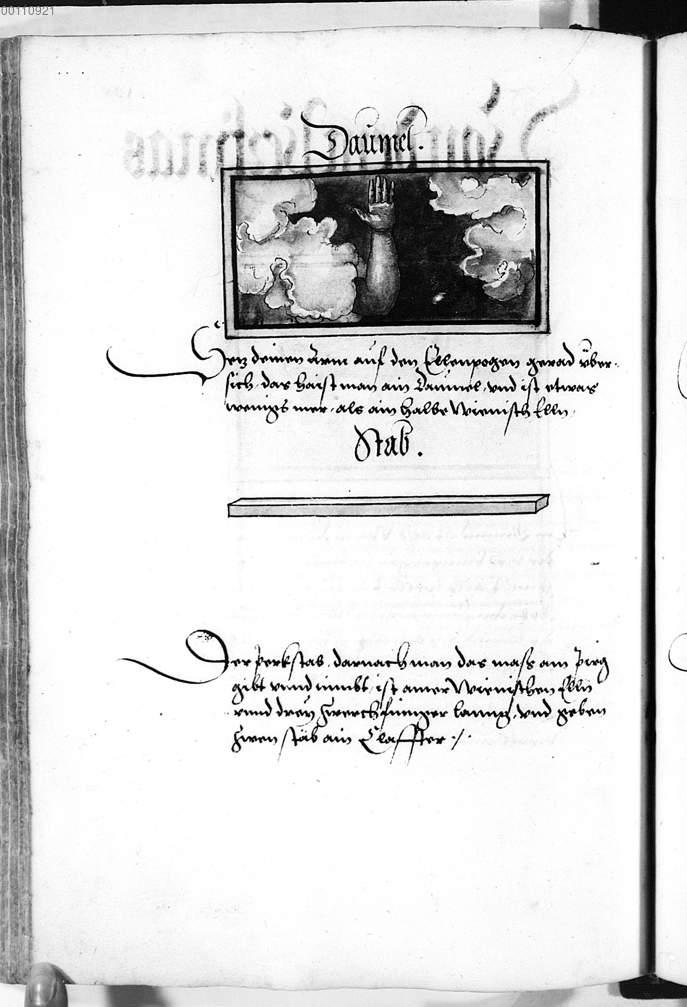 00110921
Daumel.
Setz deinen Arm auf den Ellenpogen gerad über
sich, das haist man ain Daumel, vnd ist etwas
wenigs mer, als ain halbe Wienisch Elln,
Stab.
Der Perkstab, darnach man das mass am Pirg
gibt vnnd nimbt, ist ainer Wienischen Elln
vnnd dreÿ zwerch finnger lanng, vnd geben
zwen stäb ain Claffter ./.